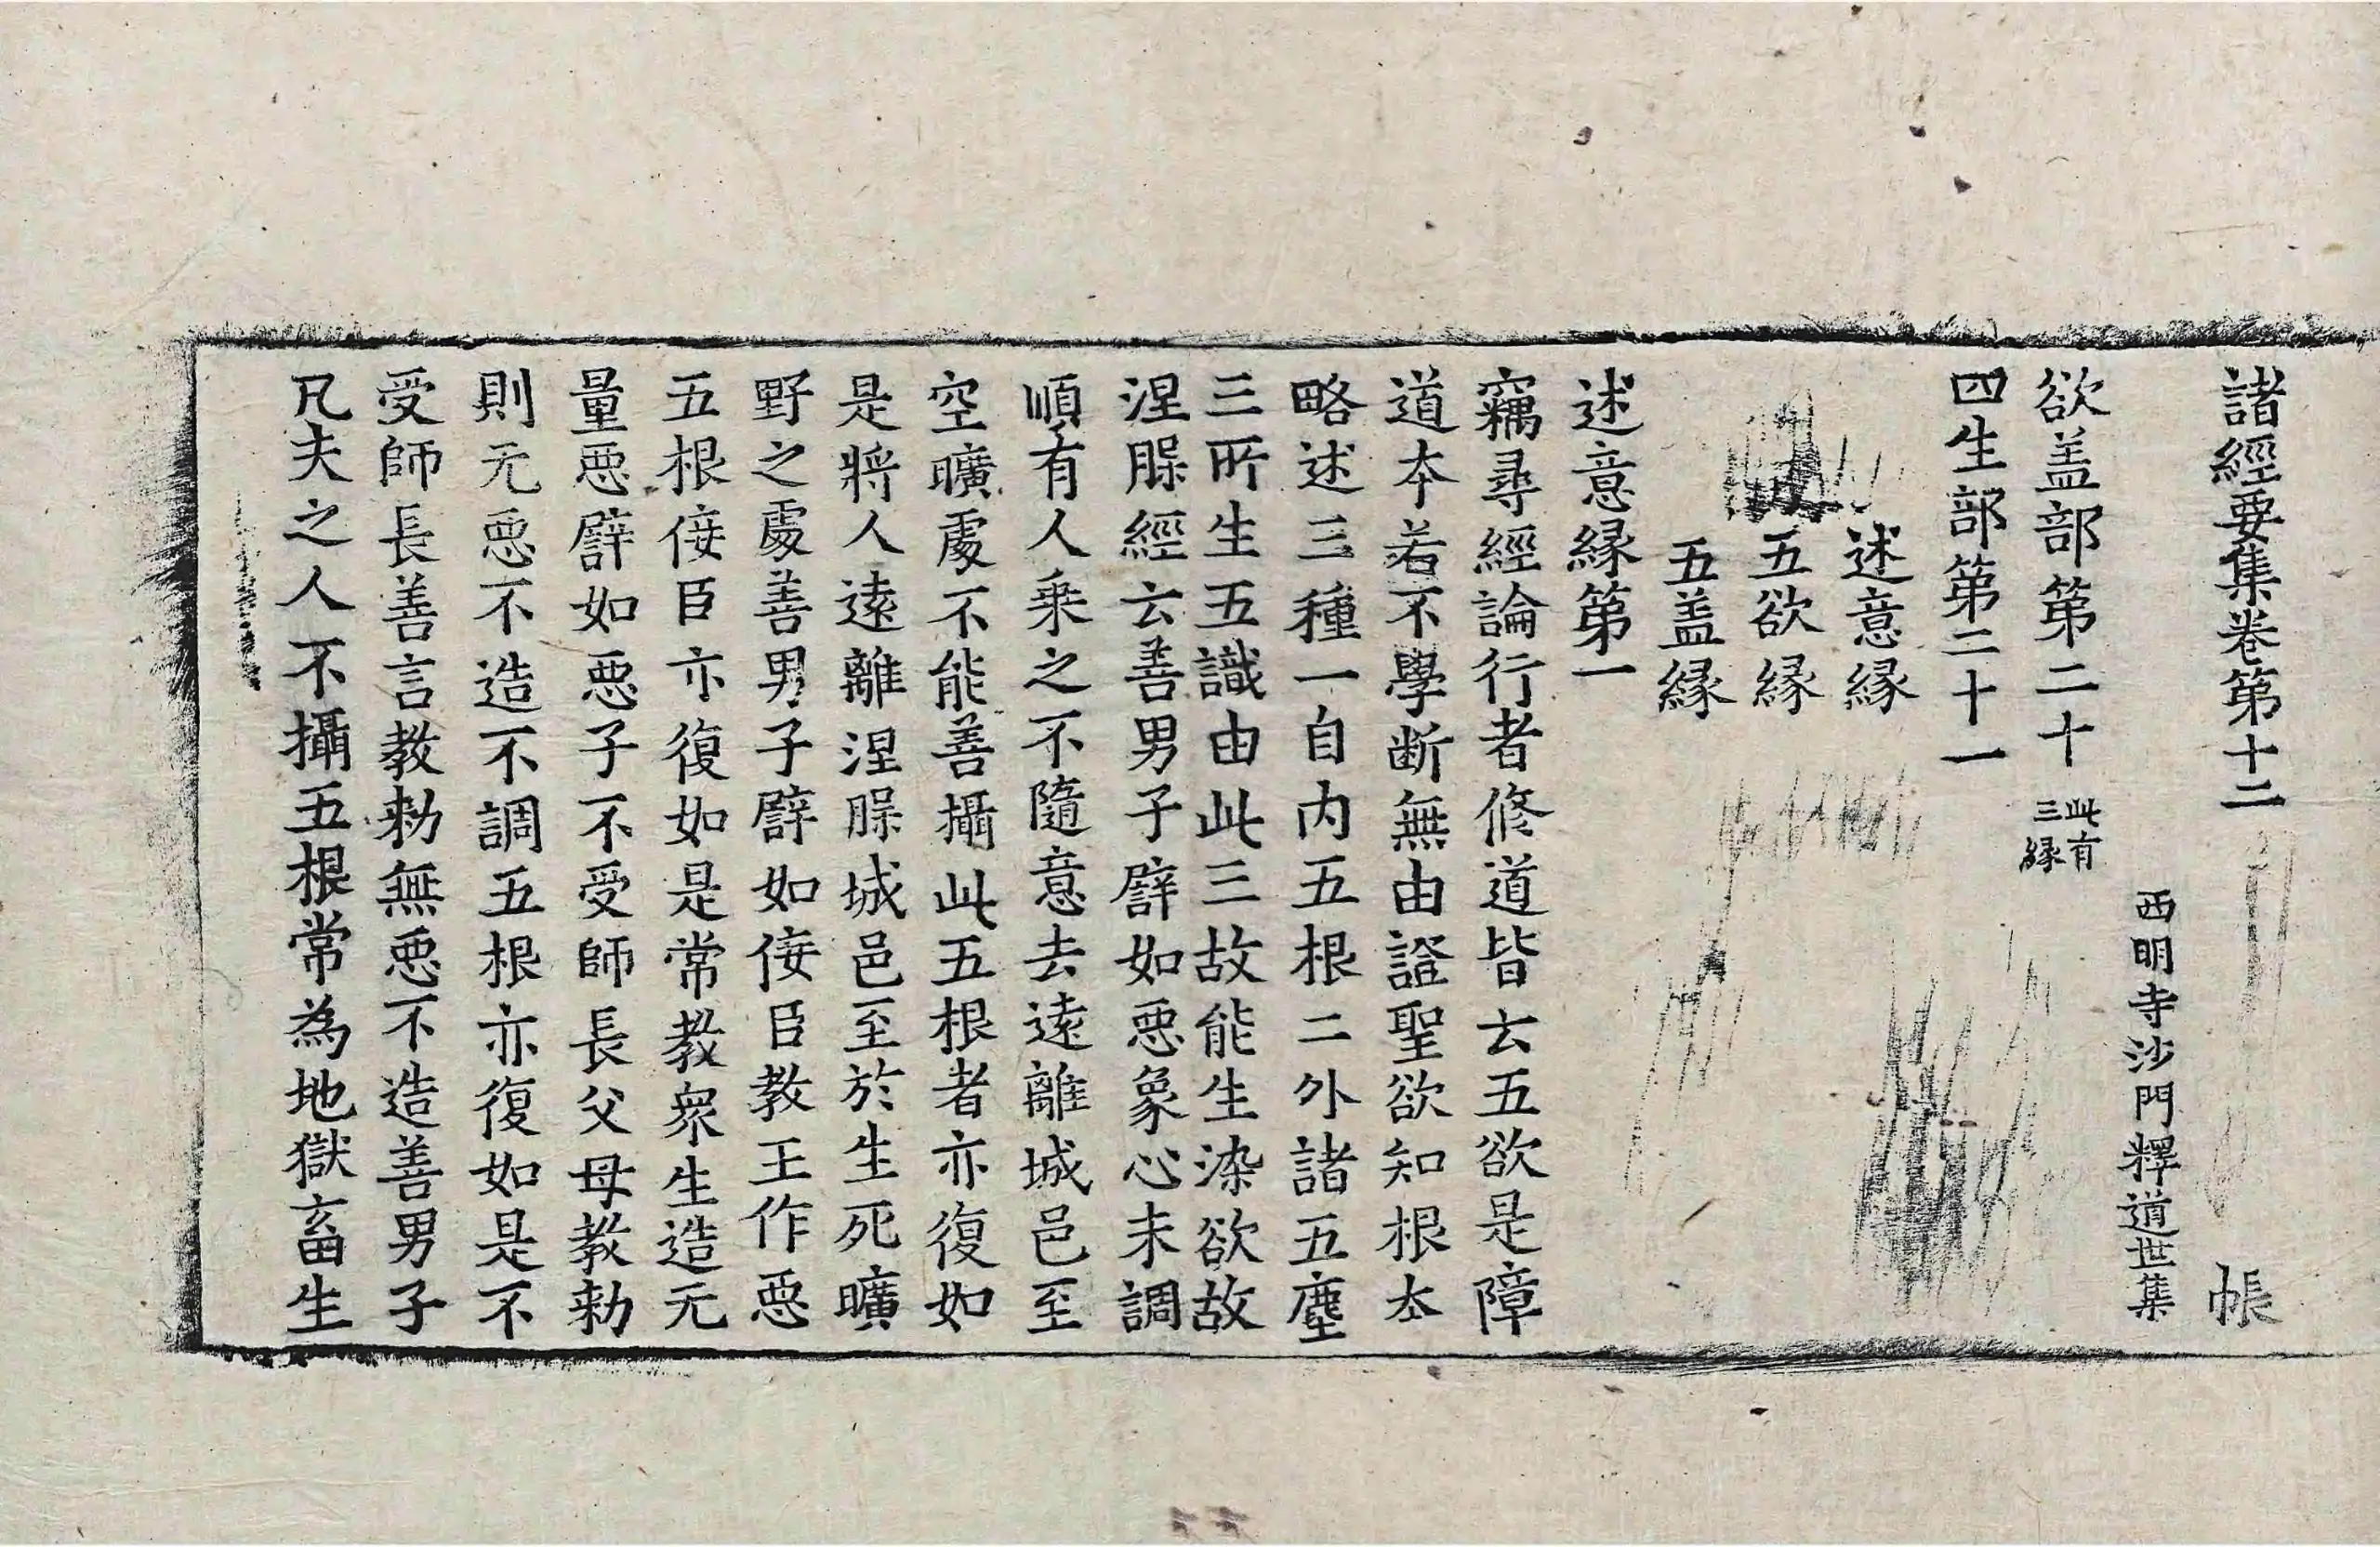 諸經要集卷第十二 帳
西明寺沙門釋道世集
欲盖部第二十 此有三縁
四生部第二十一
述意縁
五欲縁
五盖縁
述意縁第一
竊尋經論行者修道皆云五欲是障
道本若不學断無由證聖欲知根本
略述三種一自内五根二外諸五塵
三所生五識由此三故能生染欲故
涅槃經云善男子譬如惡象心未調
順有人乗之不隨意去遠離城邑至
空曠處不能善攝此五根者亦復如
是將人遠離涅槃城邑至於生死曠
野之處善男子譬如侫臣教王作惡
五根侫臣亦復如是常教衆生造无
量惡譬如惡子不受師長父母教勑
則无惡不造不調五根亦復如是不
受師長善言教勑無惡不造善男子
凡夫之人不攝五根常為地獄畜生